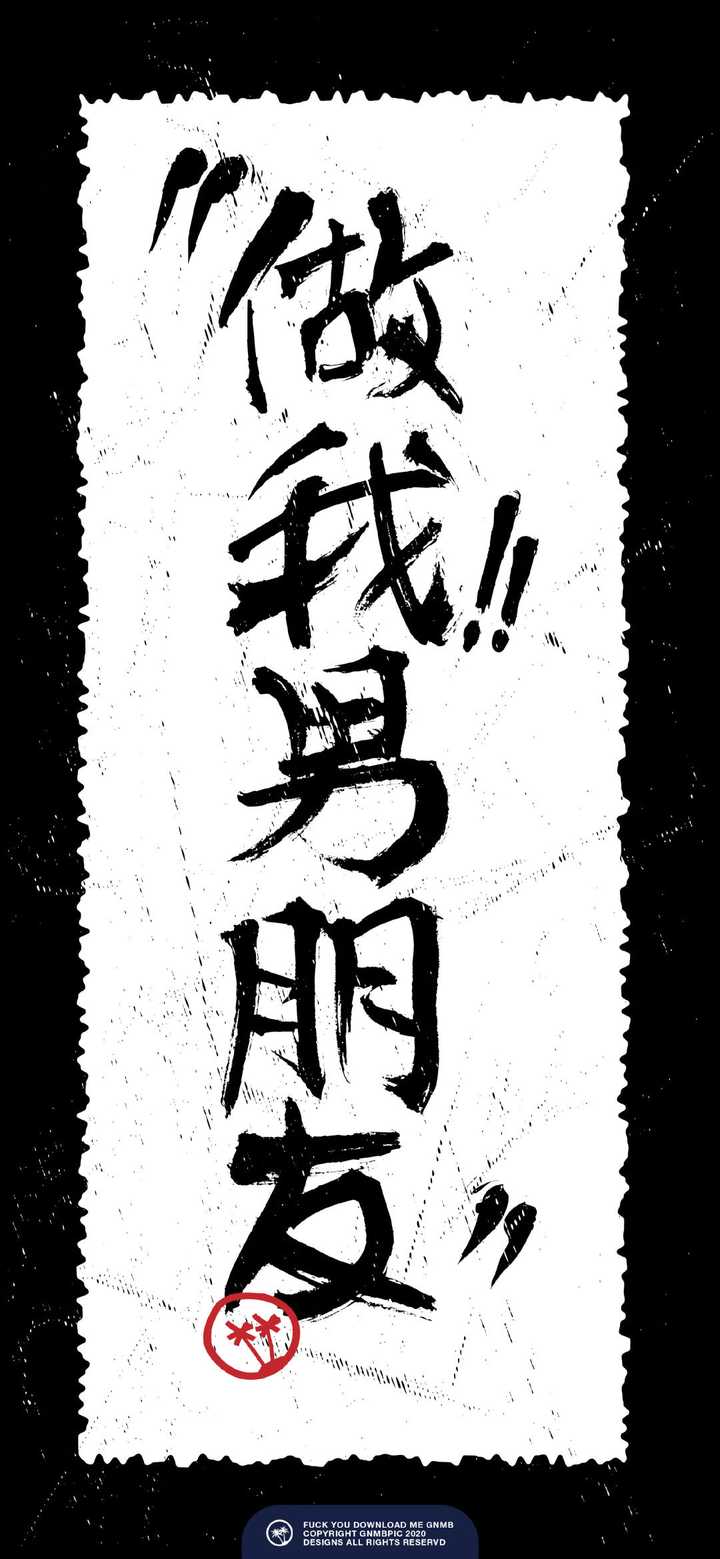 "做我男朋友"
!!
FUCK YOU DOWNLOAD ME GNMB
COPYRIGHT GNMBPIC 2020
DESIGNS ALL RIGHTS RESERVD